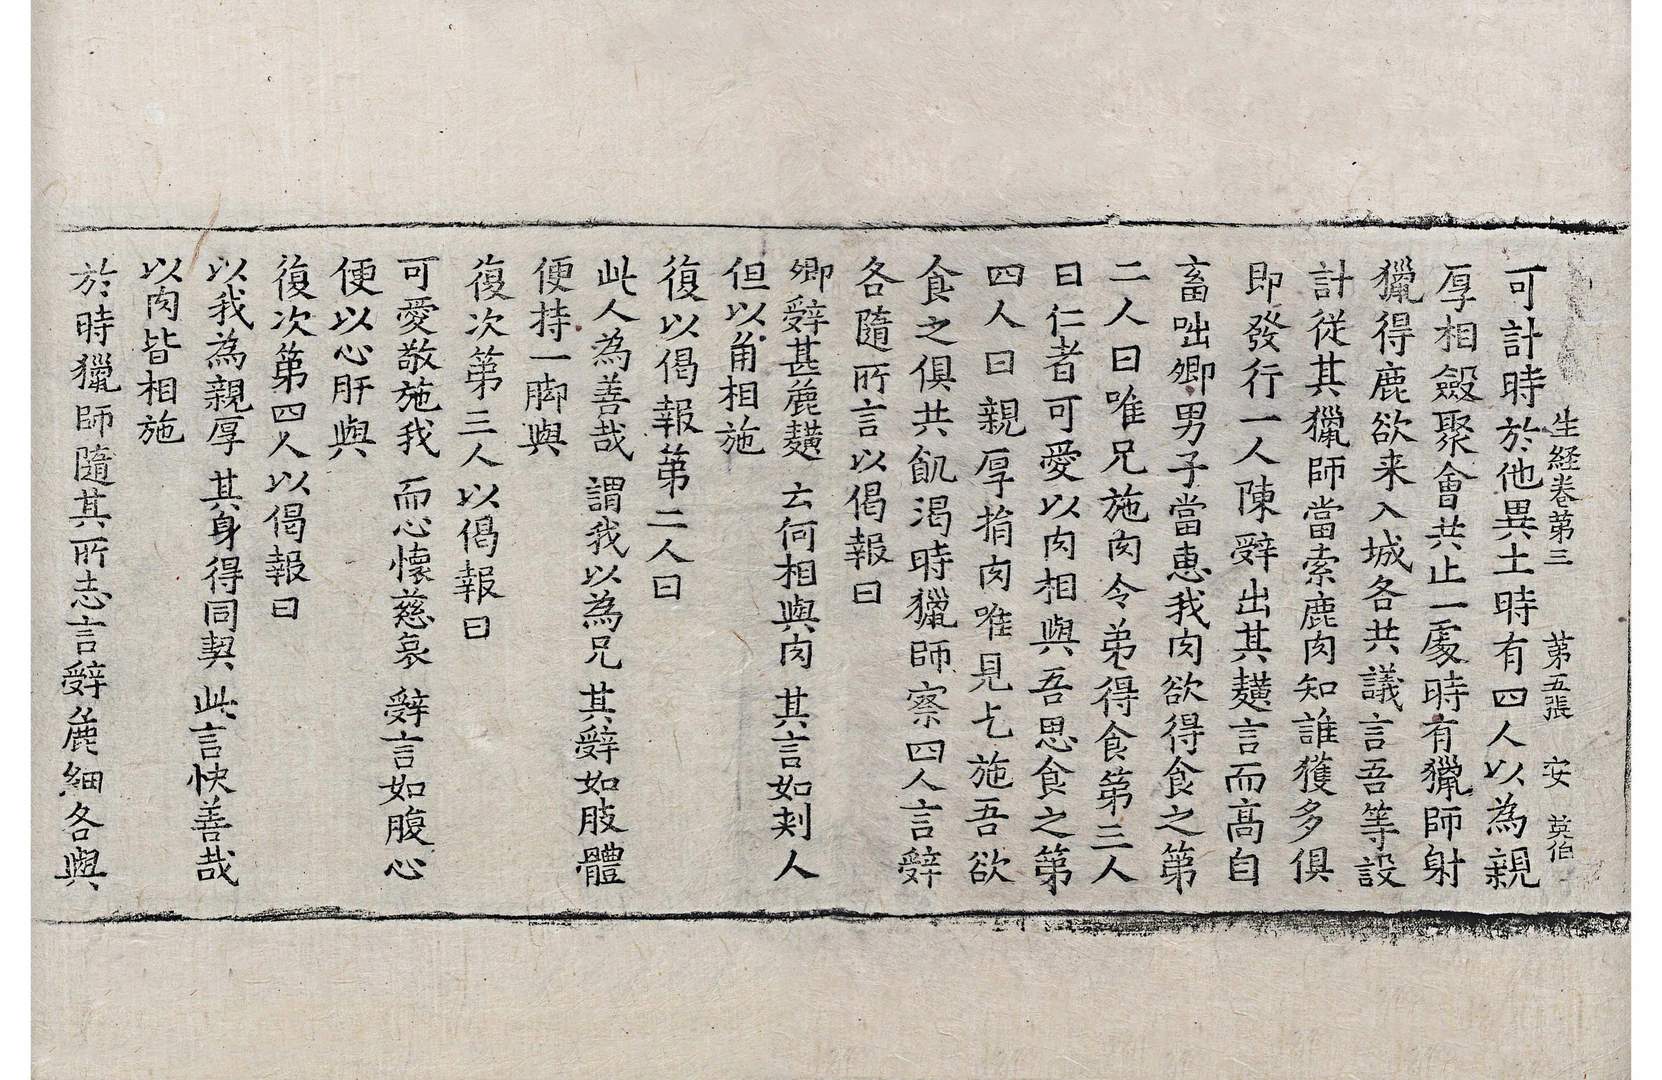 生經卷第三　第五張　安　英伯
可計時於他異土時有四人以為親
厚相斂聚會共止一處時有獵師射
獵得鹿欲来入城各共議言吾等設
計從其獵師當索鹿肉知誰獲多俱
即發行一人陳辤出其麁言而高自
畜咄卿男子當惠我肉欲得食之第
二人曰唯兄施肉令弟得食第三人
曰仁者可愛以肉相與吾思食之第
四人曰親厚捐肉唯見乞施吾欲
食之俱共飢渴時獵師察四人言辤
各隨所言以偈報曰
卿辤甚麁𪍿　云何相與肉　其言如刾人
但以角相施
復以偈報第二人曰
此人為善哉　謂我以為兄　其辤如肢體
便持一脚與
復次第三人以偈報曰
可愛敬施我　而心懷慈哀　辤言如腹心
便以心肝與
復次第四人以偈報曰
以我為親厚　其身得同契　此言快善哉
以肉皆相施
於時獵師隨其所志言辤麁細各與